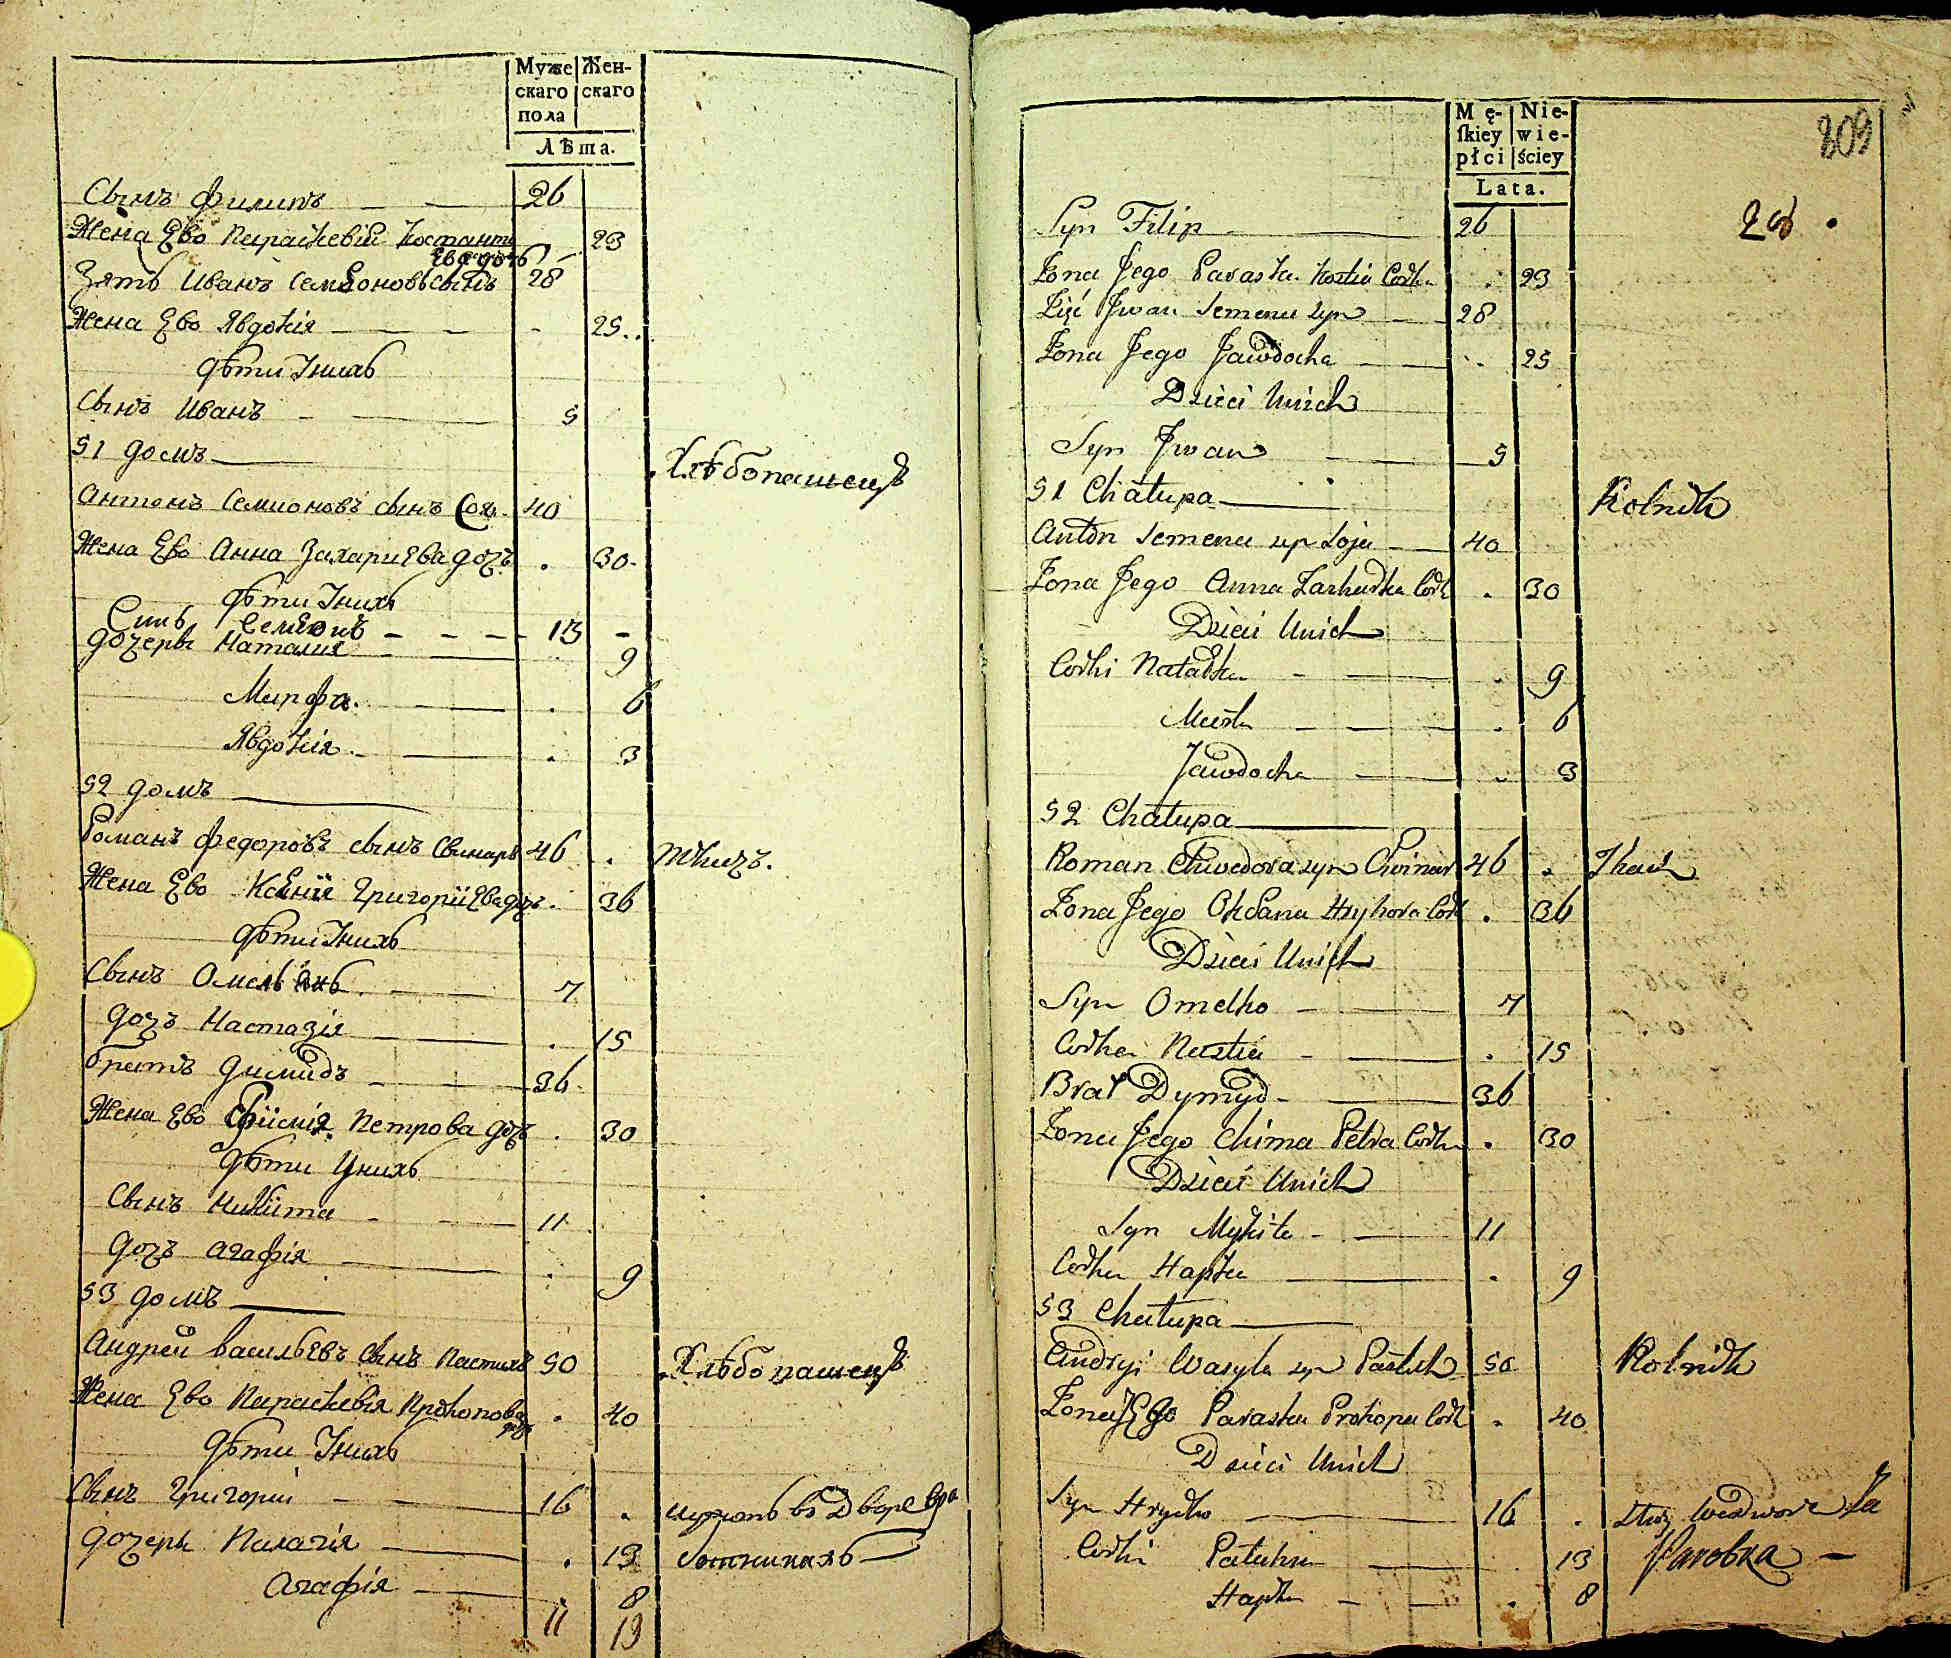 Муже Жен-
скаго скаго
пола
Лѣта.
Сынъ Филипъ 26
Жена Ево Параскевія Костанти
Ева дочь 23
Зять Иванъ Семѣоновъ сынъ 28
Жена Ево Явдокія 25
Дѣти Унихъ
Сынъ Иванъ 5
51 домъ
Хлѣбопашецъ
Антонъ Семионовъ сынъ Соя 40
Жена Ево Анна Захариева дочъ 30
Дѣти Унихъ
Синъ Семѣонъ 13
дочеры Наталия 9
Марфа 6
Явдокія 3
52 домъ
Романъ Федоровъ сынъ Свинаръ 46 ткачъ.
Жена Ево Ксенія Григоріева дочъ 36
Дѣти Унихъ
Сынъ Омельянъ 7
дочъ Настазія 15
братъ Димидъ 36
Жена Ево Ефимія Петрова дочъ 30
Дѣти Унихъ
Сынъ Никита 11
дочъ Агафія 9
53 домъ
Андрей Васильевъ сынъ Пастухъ 50 Хлѣбопашецъ
Жена Ево Параскевія Прокопова
дочъ 40
Дѣти Унихъ
Сынъ Григорій 16 въ Дворе
дочеры Палагія 13
Агафія 8
11 13
Mę- Nie-
skiey wie-
płci ściey
Lata.
309
28
Syn Filip 26
Żona Jego Paraska Kostia Codka 23
Zięć Jwan Semena syn 28
Żona Jego Jawdocha 25
Dzieci Unich
Syn Jwan 5
51 Chałupa Rolnik
Anton Semena syn Soja 40
Żona Jego Anna Zacharka Codk 30
Dzieci Unich
Codki Natalka 9
6
Jawdocha 3
52 Chałupa
Roman Chwedora syn Swinar 46 Tkacz
Żona Jego Oksana Hryhora Codk 36
Dzieci Unich
Syn Omelko 7
Codka Nastia 15
Brat Dymyd 36
Żona Jego Chima Petra Codka 30
Dzieci Unich
Syn Mykita 11
Codka Hapka 9
53 Chałupa
Andryi Wasyla syn Pastuch 50 Rolnik
Żona Jego Paraska Prokopa Codk 40
Dzieci Unich
Syn Hryćko 16 służ wedworze za
Codki Pałahna 13 Parobka
Hapka 8